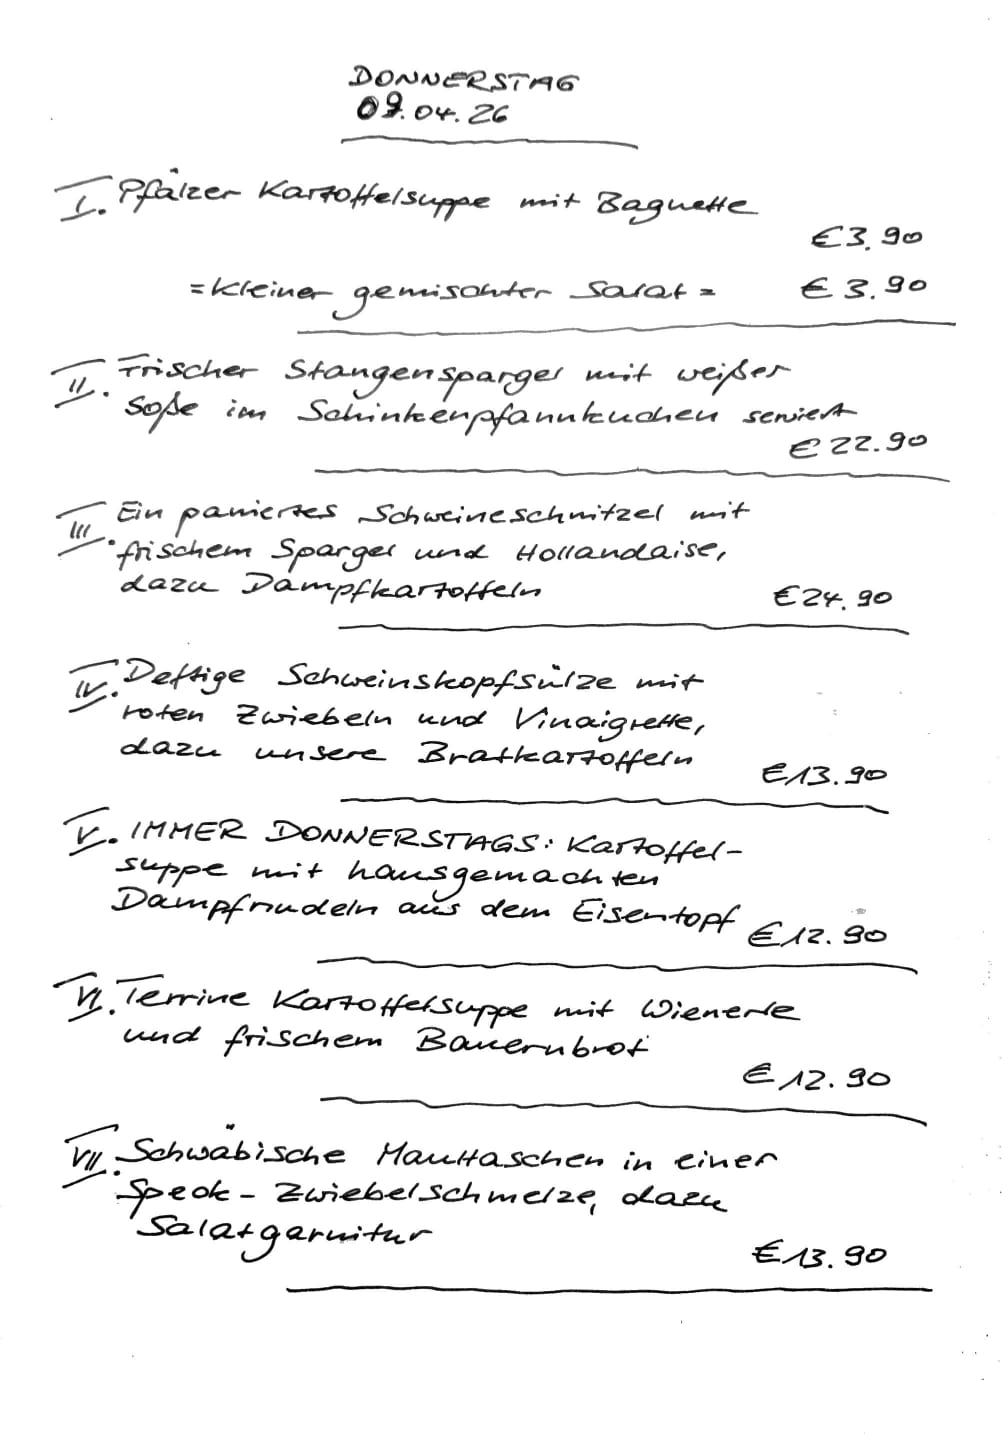 DONNERSTAG
09.04.26
I. Pfälzer Kartoffelsuppe mit Baguette
€3.90
=kleiner gemischter Salat= €3.90
II. Frischer Stangenspargel mit weißer
Soße im Schinkenpfannkuchen serviert
€22.90
III. Ein paniertes Schweineschnitzel mit
frischem Spargel und Hollandaise,
dazu Dampfkartoffeln €24.90
IV. Deftige Schweinskopfsülze mit
roten Zwiebeln und Vinaigrette,
dazu unsere Bratkartoffeln
€13.90
V. IMMER DONNERSTAGS: Kartoffel-
suppe mit hausgemachten
Dampfnudeln aus dem Eisentopf
€12.90
VI. Terrine Kartoffelsuppe mit Wienerle
und frischem Bauernbrot
€12.90
VII. Schwäbische Maultaschen in einer
Speck-Zwiebelschmelze, dazu
Salatgarnitur
€13.90